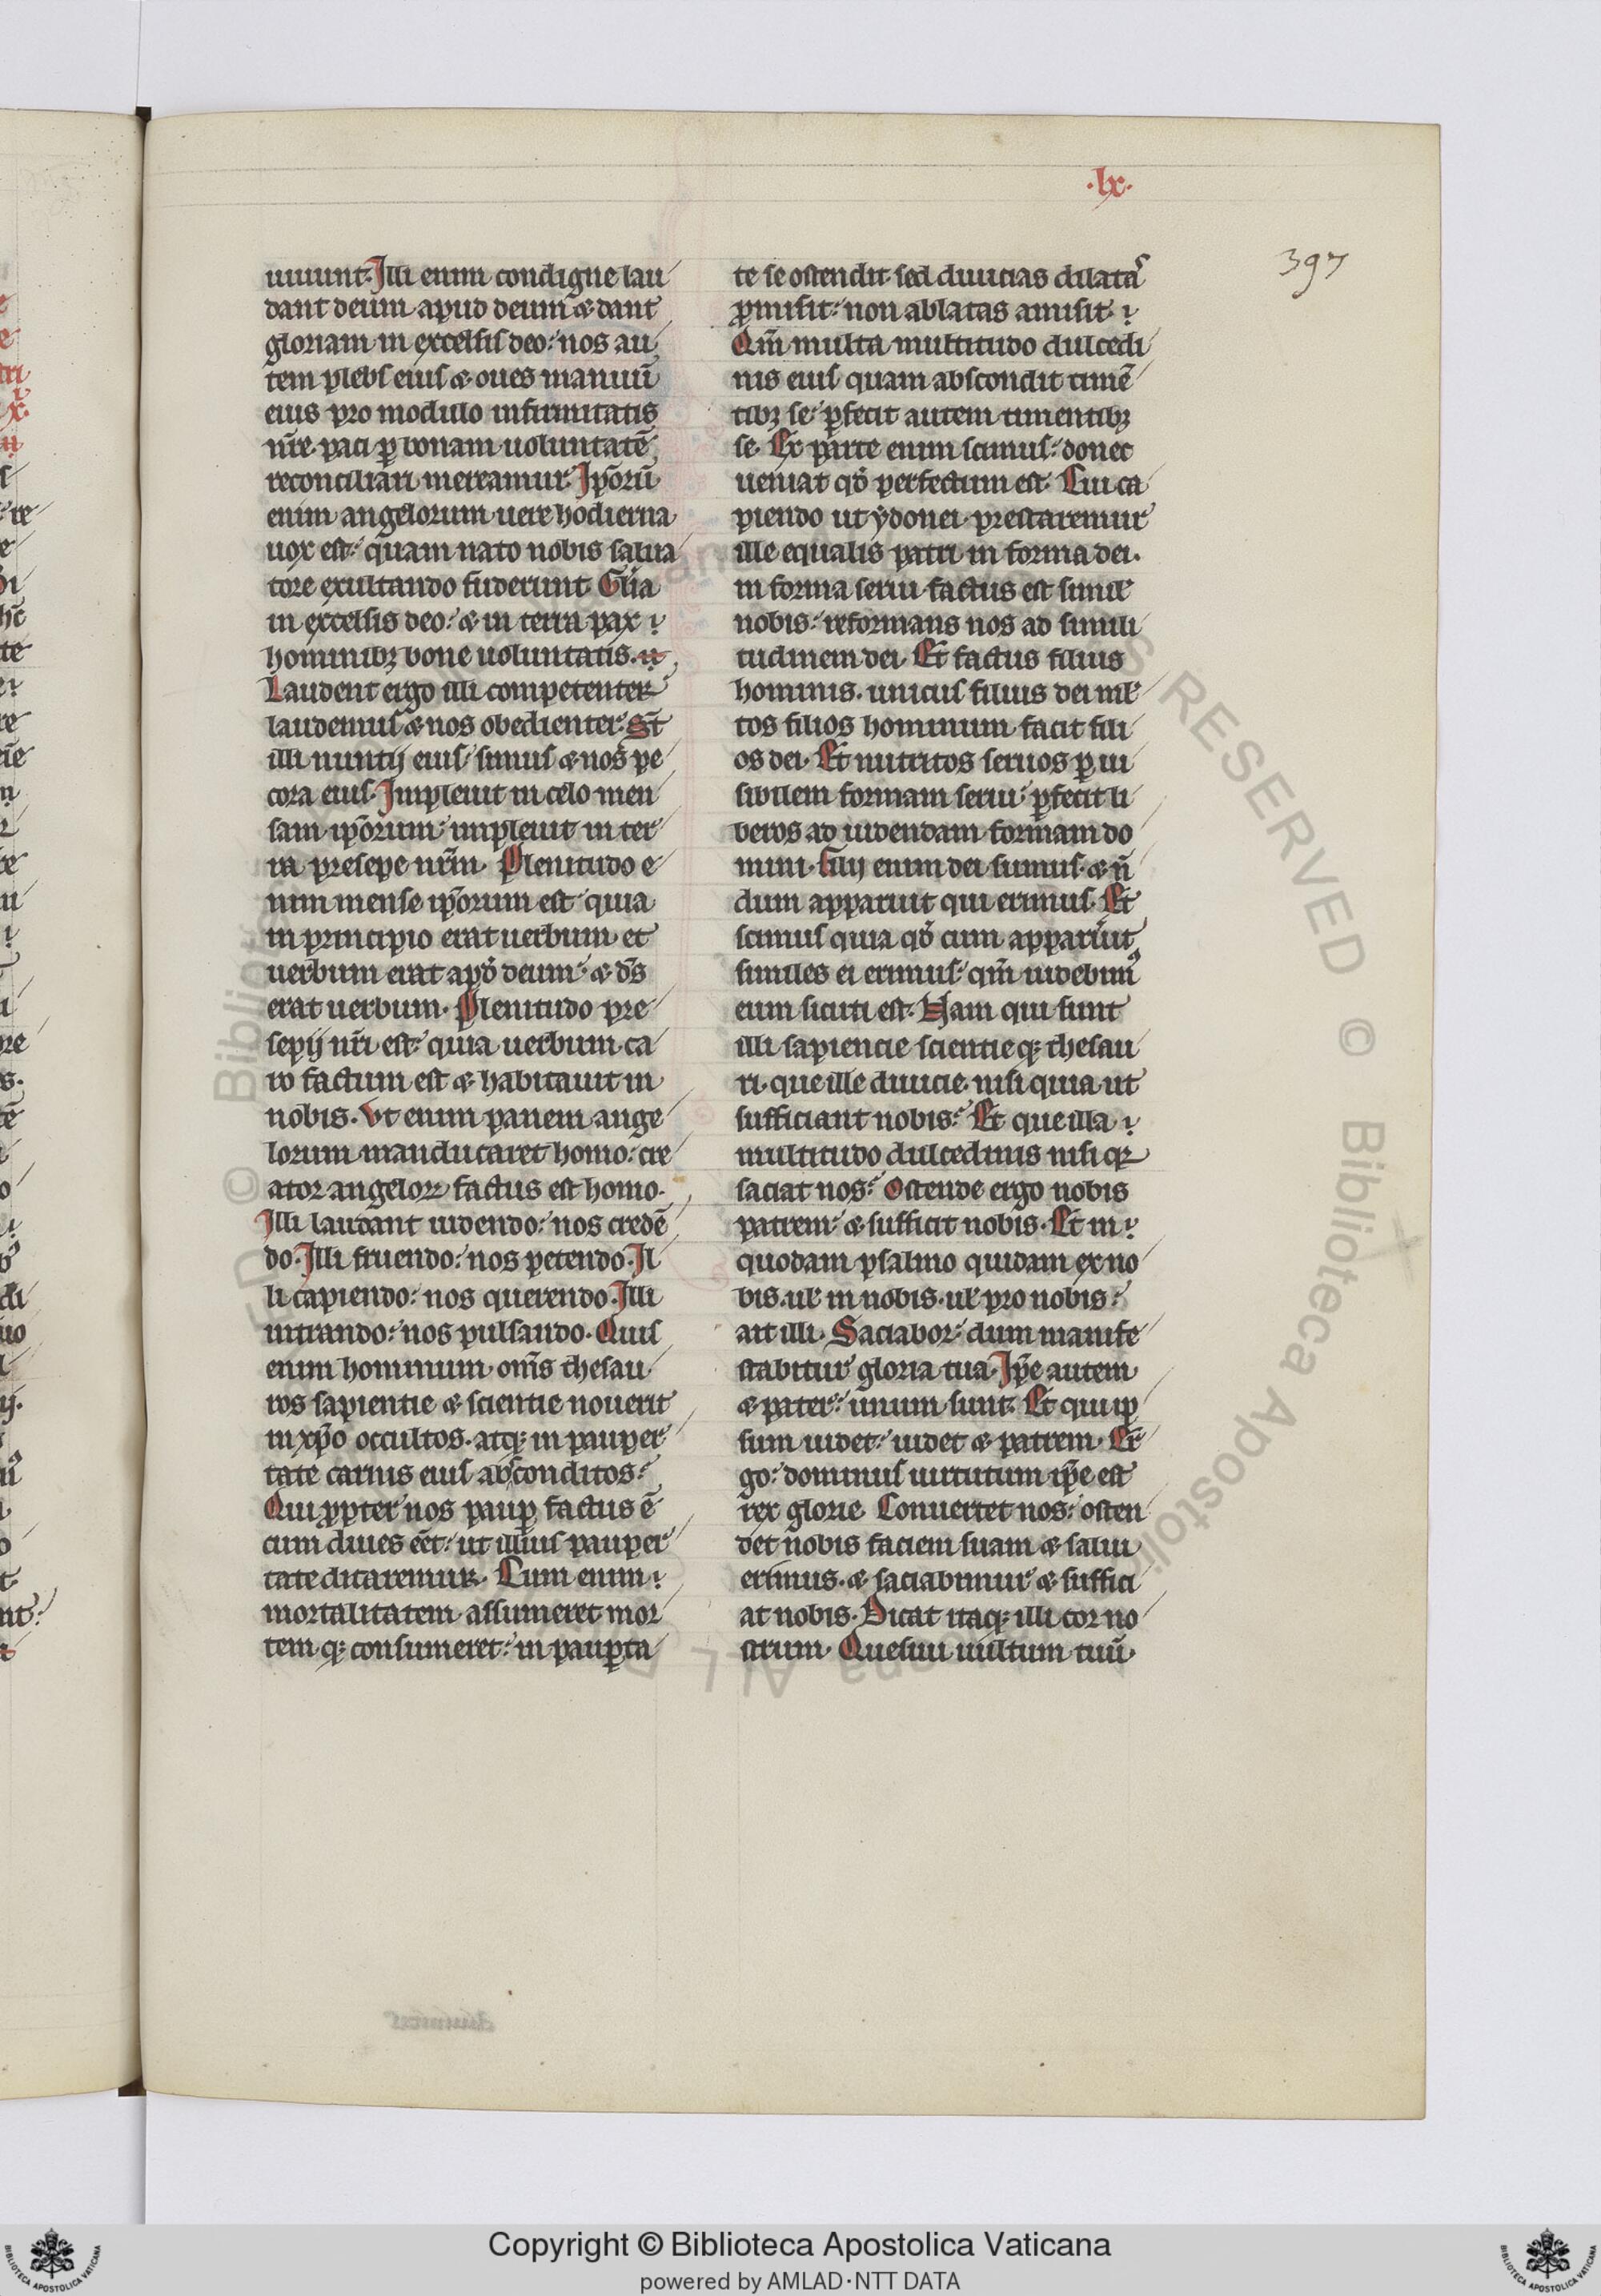 ·lx·
397
uiuunt. Illi enim condigne lau
dant deum apud deum ⁊ dant
gloriam in excelsis deo: nos au
tem plebs eius ⁊ oues manuū
eius pro modulo infirmitatis
nr̄e paci ꝑ bonam uoluntatē
reconciliari mereamur. Ipōꝝ
enim angelorum uere hodierna
uox est: quam nato nobis salua
tore exultando fuderunt. Gl̄ia
in excelsis deo: ⁊ in terra pax
hominibꝫ bone uoluntatis.
Laudent ergo illi competenter
laudemus ⁊ nos obedienter. St̄
illi nuntij eius: simus ⁊ nos pe
cora eius. Impleuit in celo men
sam ip̄orum: impleuit in ter
ra presepe nr̄m. Plenitudo e
nim mense ip̄orum est quia
in principio erat uerbum et
uerbum erat apd̄ deum: ⁊ ds̄
erat uerbum. Plenitudo pre
sepij nr̄i est: quia uerbum ca
ro factum est ⁊ habitauit in
nobis. Vt enim panem ange
lorum manducaret homo: cre
ator angeloꝝ factus est homo.
Illi laudant uidendo: nos credē
do. Illi fruendo: nos petendo. Il
li capiendo: nos querendo. Illi
intrando: nos pulsando. Quis
enim hominum om̄s thesau
ros sapientie ⁊ scientie nouerit
in xp̄o occultos. atqꝫ in pauper
tate carnis eius absconditos:
Qui ꝓpter nos pauꝑ factus ē
cum diues eēt: ut illius pauper
tate ditaremur. Cum enim
mortalitatem assumeret mor
tem qꝫ consumeret: in pauꝑta
te se ostendit sed diuicias dilatas
ꝓmisit: non ablatas amisit.
Qm̄ multa multitudo dulcedi
nis eius quam abscondit timē
tibꝫ se: ꝑfecit autem timentibꝫ
se. Ex parte enim scimus: donec
ueniat qd̄ perfectum est. Cui ca
piendo ut ydonei prestaremur
ille equalis patri in forma dei.
in forma serui factus est simil̄
nobis: reformans nos ad simili
tudinem dei. Et factus filius
hominis. unicus filius dei ml̄
tos filios hominum facit fili
os dei. Et nutritos seruos ꝑ ui
sibilem formam serui: ꝑfecit li
beros ad uidendam formam do
mini. Filij enim dei sumus. ⁊ n̄
dum apparuit qui erimus. Et
scimus quia qd̄ cum apparuit
similes ei erimus: qm̄ uidebimꝰ
eum sicuti est. Nam qui sunt
illi sapiencie scientieqꝫ thesau
ri. que ille diuicie. nisi quia ut
sufficiant nobis: Et que illa
multitudo dulcedinis nisi qꝛ
saciat nos: Ostende ergo nobis
patrem: ⁊ sufficit nobis. Et in
quodam psalmo quidam ex no
bis. ul̄ in nobis. ul̄ pro nobis:
ait illi. Saciabor: dum manife
stabitur gloria tua. Ip̄e autem
⁊ pater: unum sunt. Et qui ip̄
sum uidet: uidet ⁊ patrem. Er
go: dominus uirtutum ip̄e est
rex glorie. Conuertet nos: osten
det nobis faciem suam ⁊ salui
erimus. ⁊ saciabimur ⁊ suffici
at nobis. Dicat itaqꝫ illi cor no
strum. Quesiui uultum tuū.
Copyright © Biblioteca Apostolica Vaticana
powered by AMLAD·NTT DATA